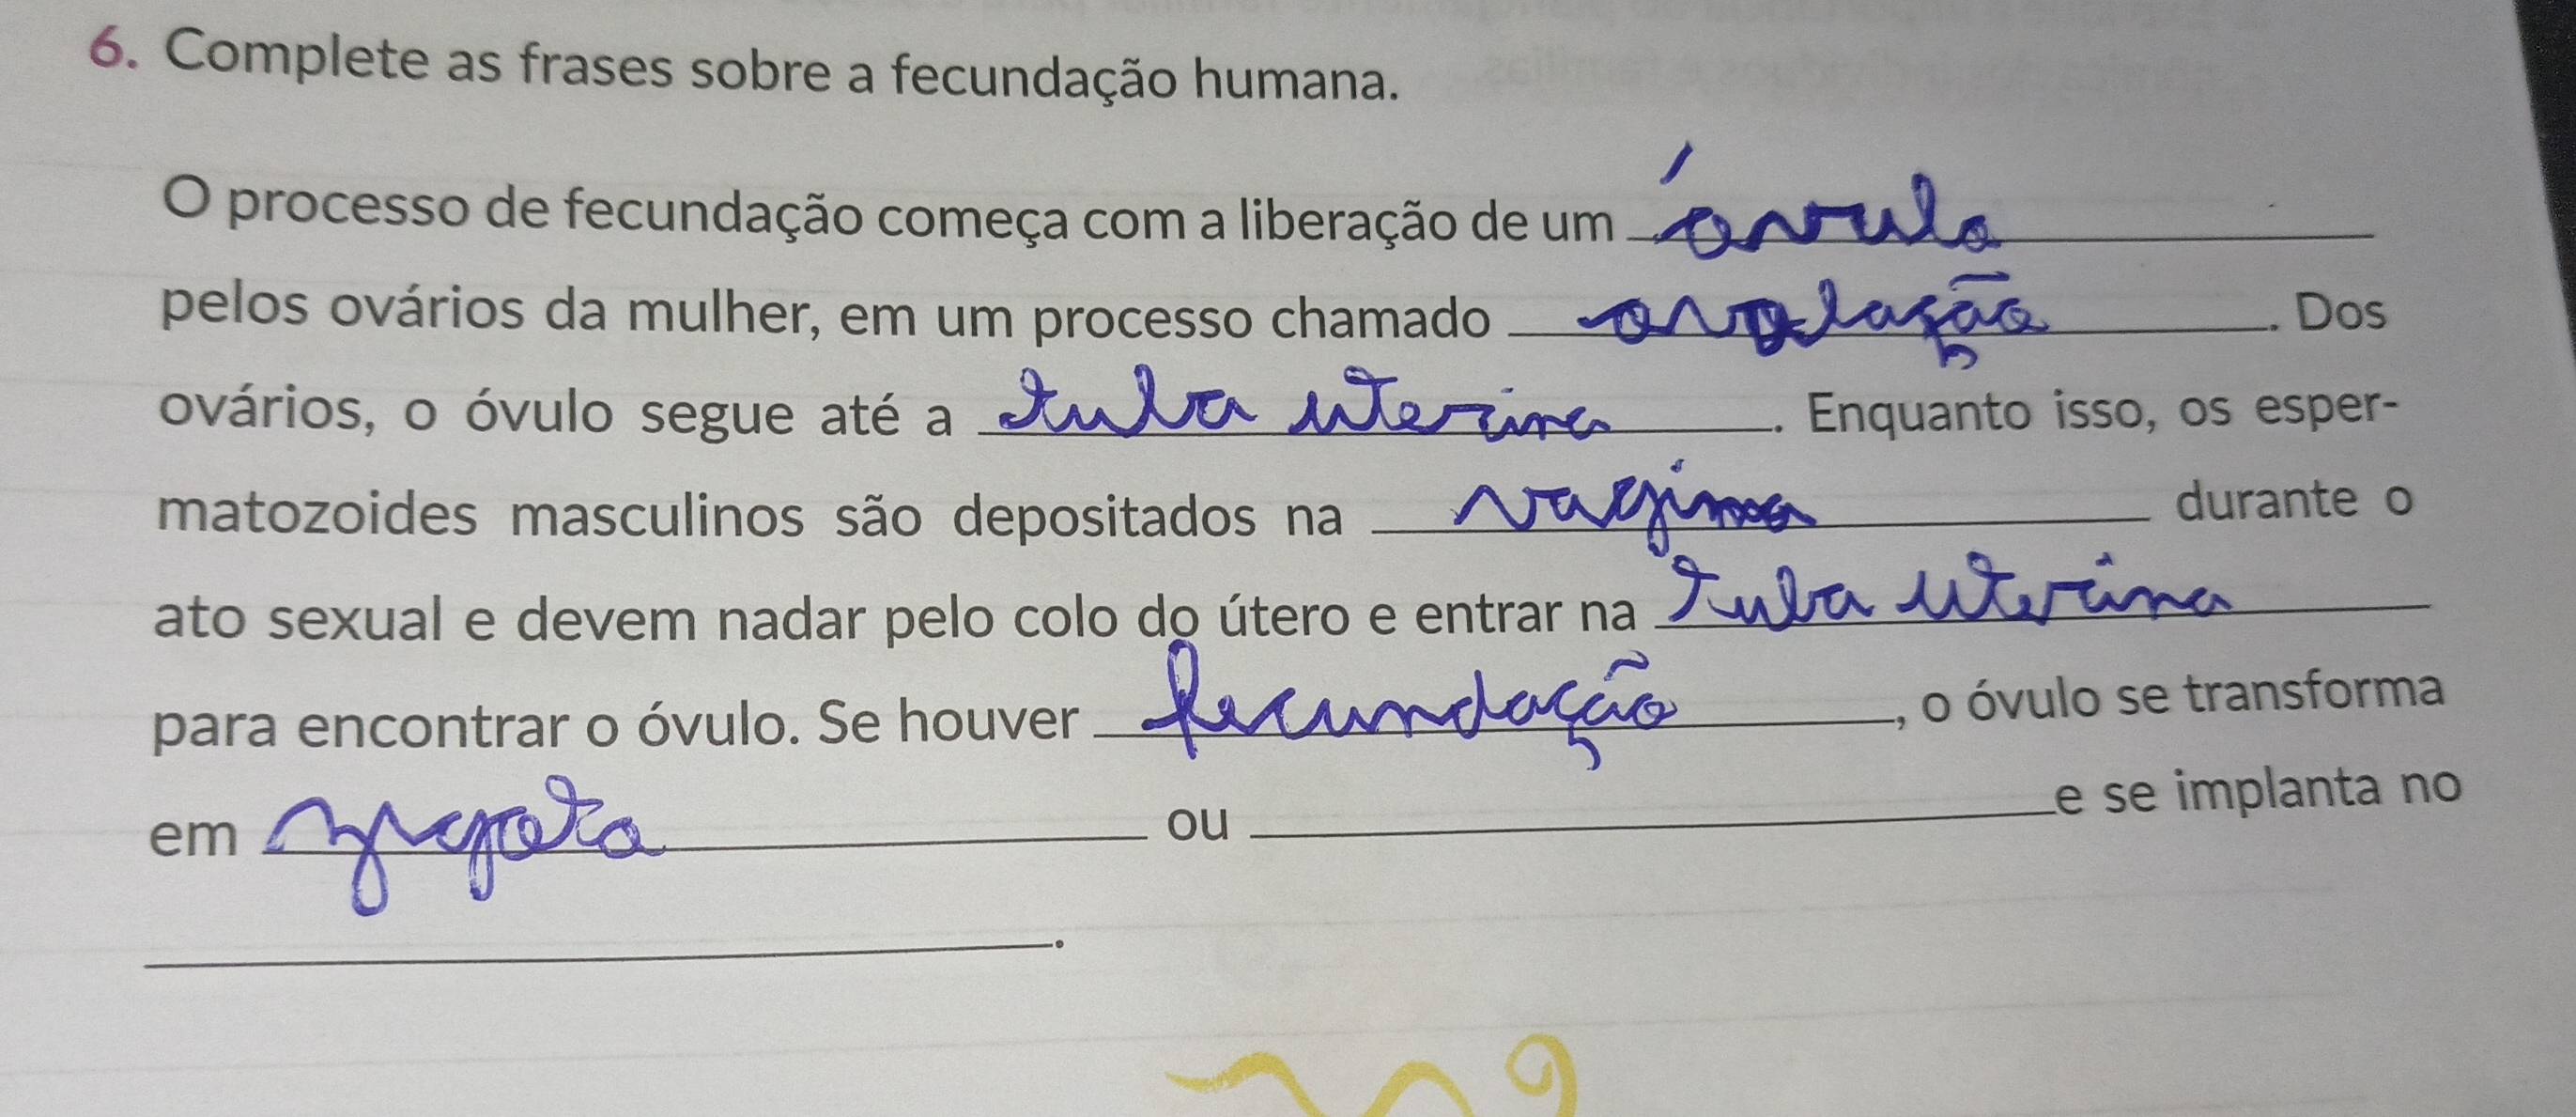 6. Complete as frases sobre a fecundação humana.
O processo de fecundação começa com a liberação de um óvulo
pelos ovários da mulher, em um processo chamado ovolação. Dos
ovários, o óvulo segue até a tuba uterina. Enquanto isso, os esper-
matozoides masculinos são depositados na vagina durante o
ato sexual e devem nadar pelo colo do útero e entrar na tuba uterina
para encontrar o óvulo. Se houver fecundação, o óvulo se transforma
em zigoto ou e se implanta no